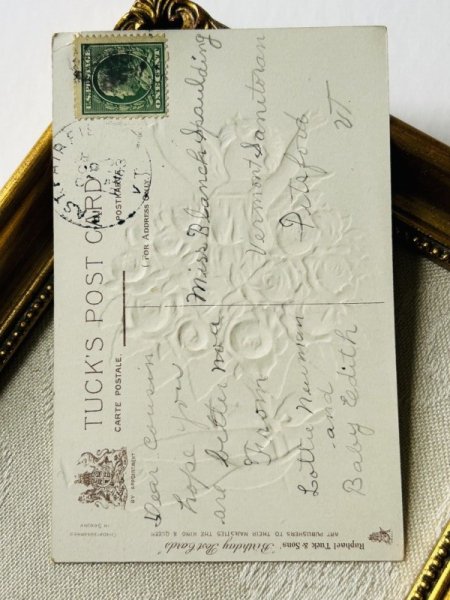 U.S. POSTAGE
ONE CENT
TUCK'S POST CARD
CARTE POSTALE.
POSTKARTE
(FOR ADDRESS ONLY.)
BY APPOINTMENT
Dear Cousin
hope you
are better now
From
Lottie Newman
and
Baby Edith
Miss Blanch Spaulding
Vermont Sanitoran
Pittsford
VT
Raphael Tuck & Sons' "Birthday" Post Cards
ART PUBLISHERS TO THEIR MAJESTIES THE KING & QUEEN
CHROMOGRAPHED
IN SAXONY